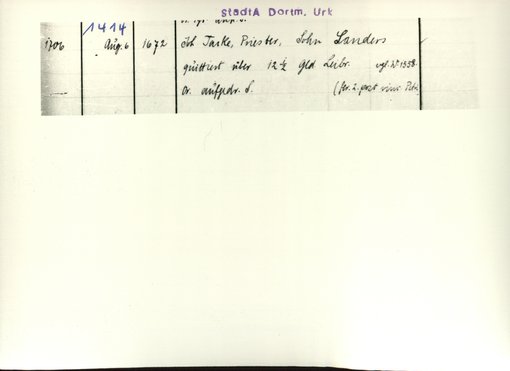 StadtA Dortm. Urk
1414
1706 Aug. 6 1672 Joh Tacke, Priester, Sohn Landers
quittiert über 12 ½ Gld Leibr. vgl. N° 1558.
Or. aufgedr. S. (fer. 2. post vinc. Petri